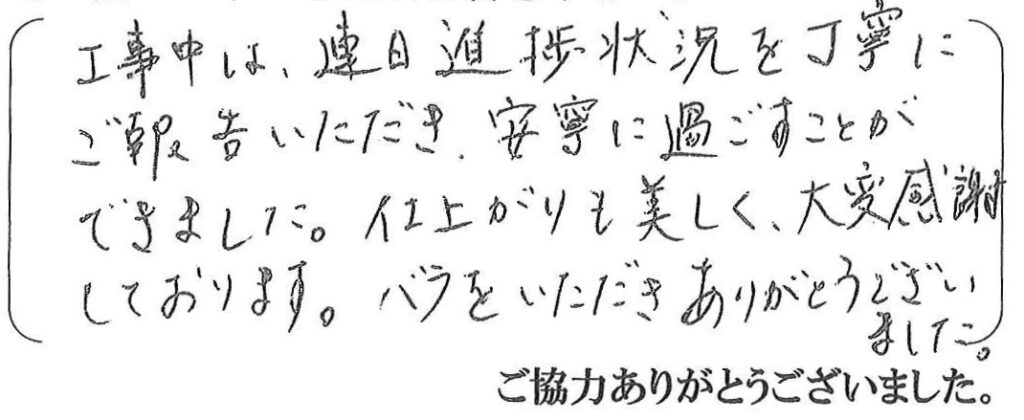 工事中は、連日進捗状況を丁寧に
ご報告いただき、安寧に過ごすことが
できました。仕上がりも美しく、大変感謝
しております。バラをいただきありがとうござい
ました。
ご協力ありがとうございました。